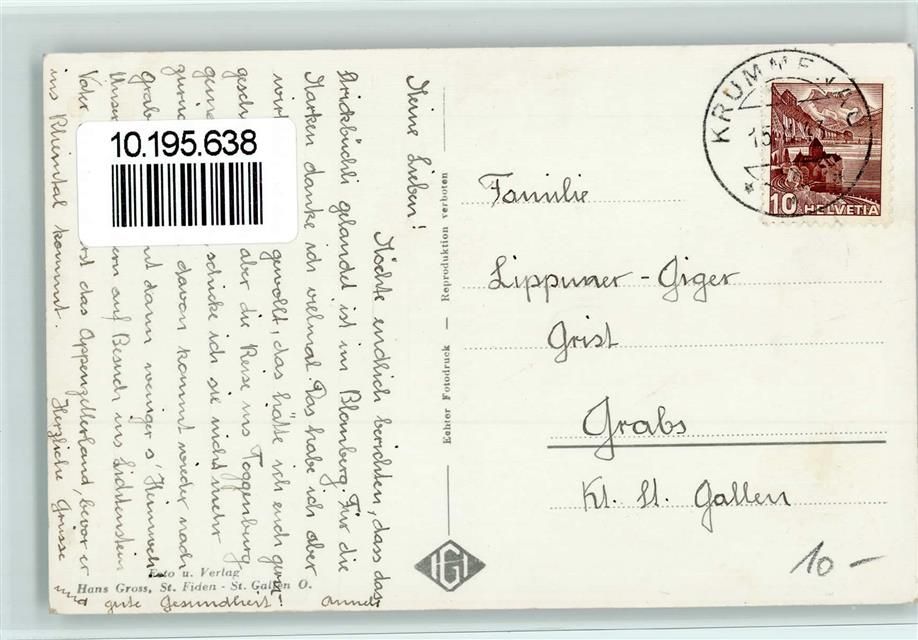 Meine Lieben!
Möchte endlich berichten, dass das
Strickbüchli gelandet ist im Blomberg. Für die
Karten danke ich vielmal. Das habe ich aber
gewollt, das hätte ich euch gerne
aber die Reise ins Toggenburg
schicke ich sie nicht mehr
davon kommt wieder nach
dann weniger s'Heimweh.
auf Besuch ins Lichtenstein
das Appenzellerland, bevor er
ins Rheintal kommt. Herzliche Grüsse
und gute Gesundheit!
10.195.638
Foto u. Verlag
Hans Gross, St. Fiden - St. Gallen O.
Echter Fotodruck — Reproduktion verboten
HG
KRUMMENAU
10 HELVETIA
Familie
Lippuner-Giger
Grist
Grabs
Kt. St. Gallen
10 -